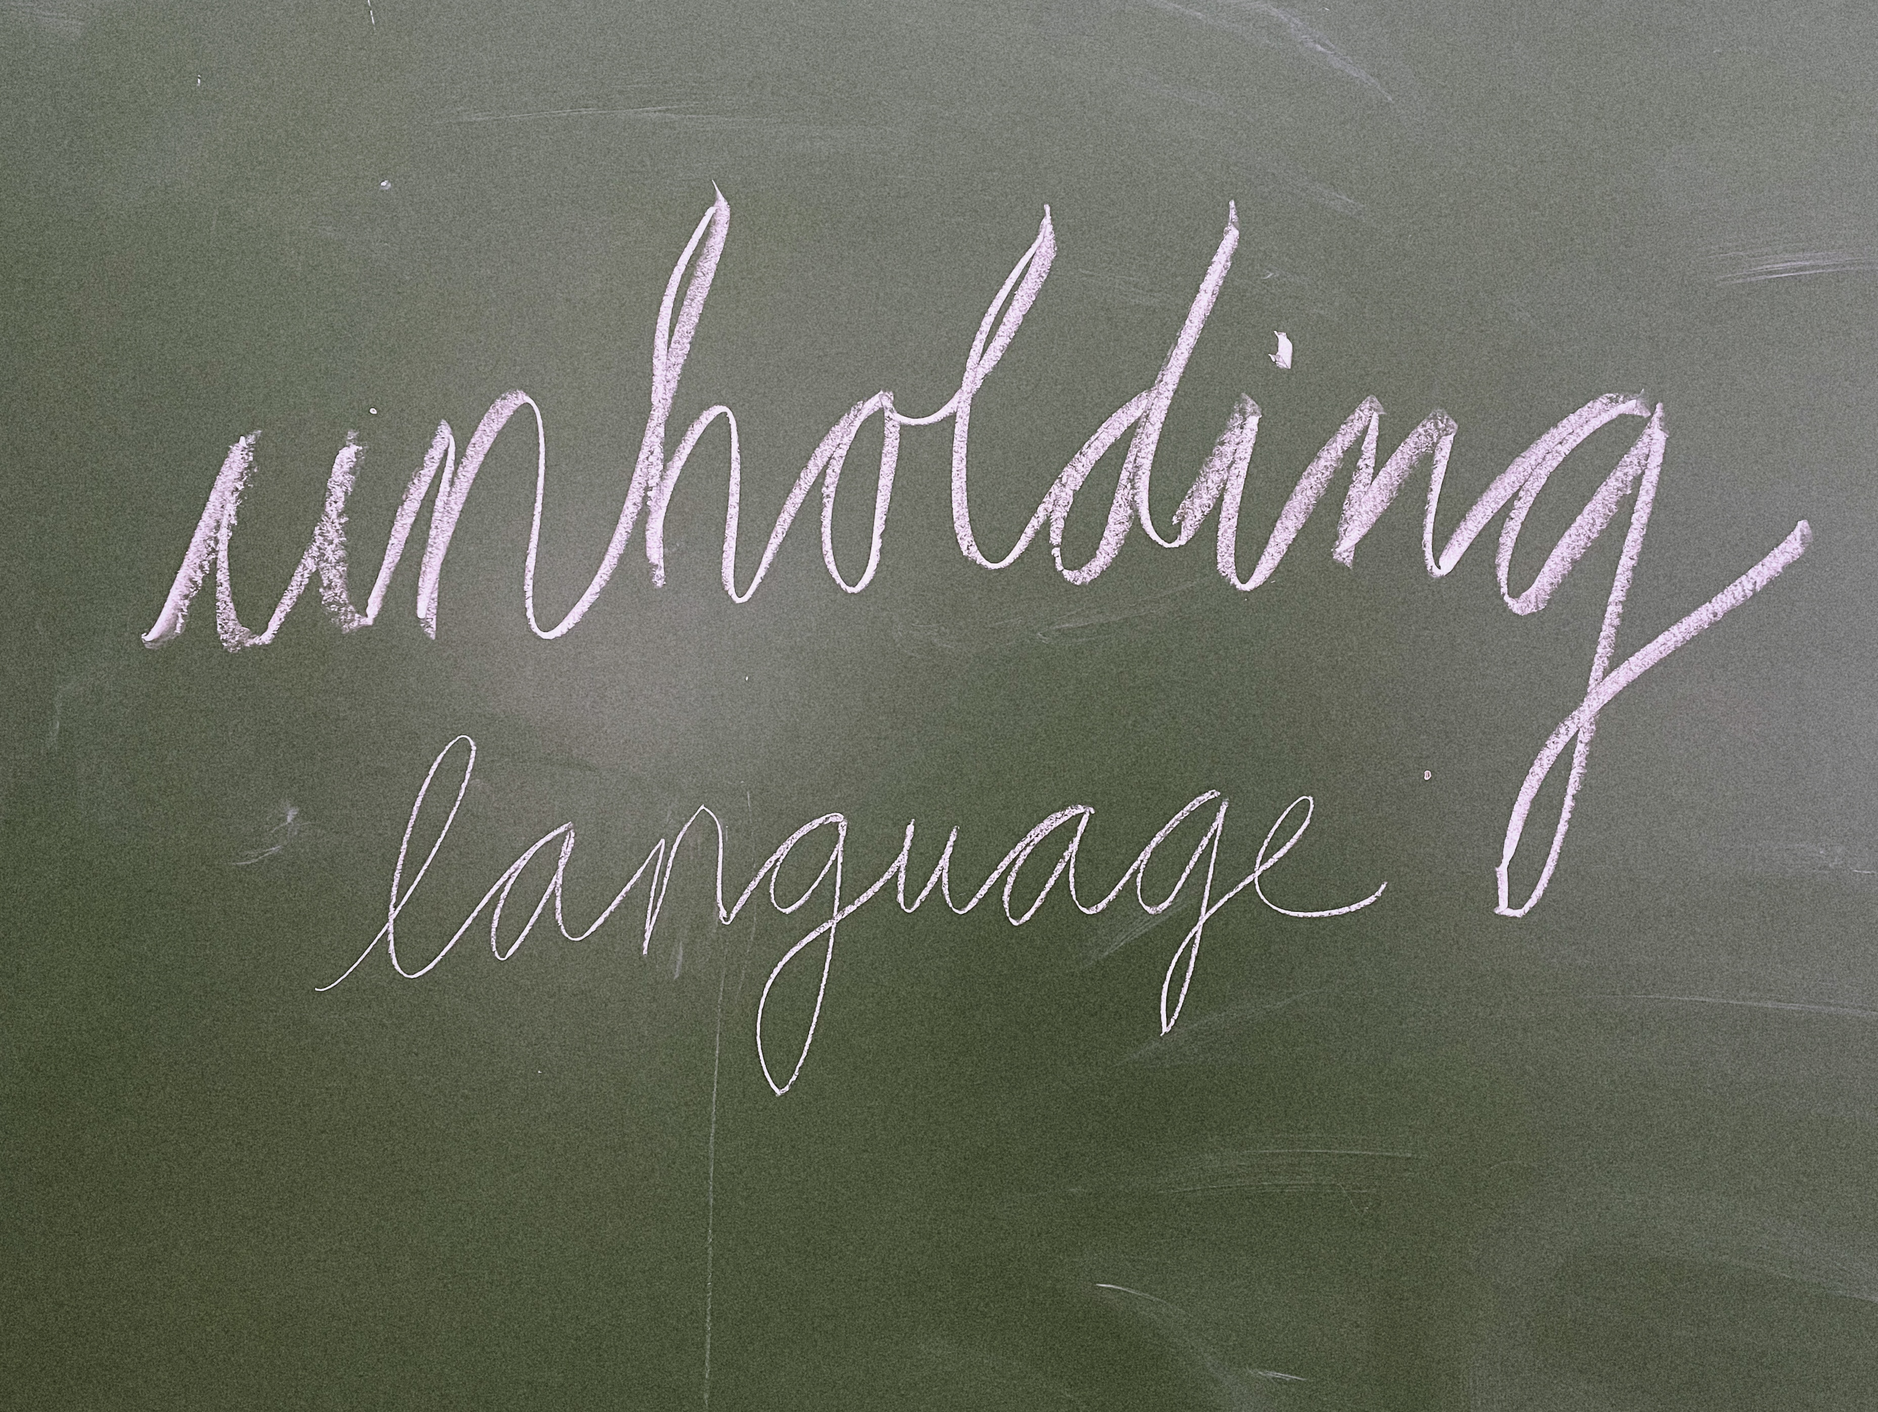 unholding
language